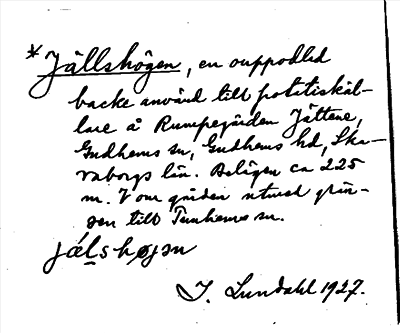 * Jällshögen, en ouppodlad
backe använd till potatiskäl-
lare å Rumpegården Jättene,
Gudhems sn, Gudhems hd, Ska-
raborgs län. Belägen ca 225
m. V om gården utmed grän-
sen till Tunhems sn.
jälshøgən
I. Lundahl 1927.